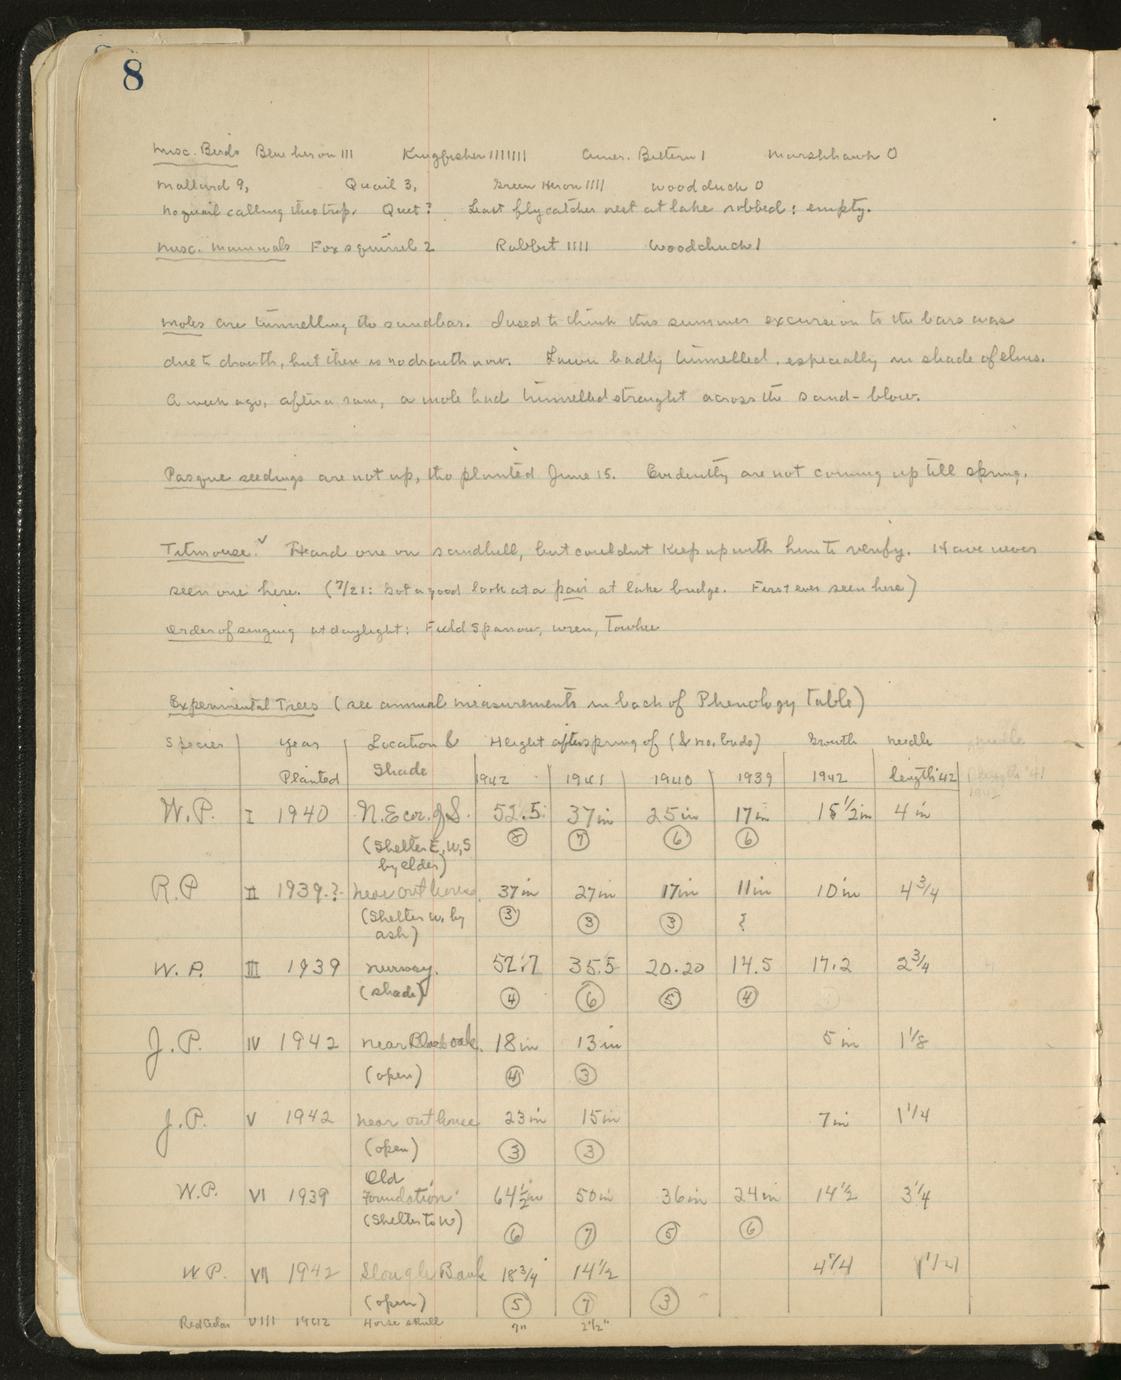 8
Misc. Birds Blue heron III Kingfisher IIIIIII Amer. Bittern I Marshhawk 0
Mallard 9, Quail 3, Green Heron IIII Woodduck 0
No quail calling this trip. Quet? Least flycatcher nest at lake robbed; empty.
Misc. Mammals Fox squirrel 2 Rabbit IIII Woodchuck I
Moles are tunnelling the sandbar. I used to think this summer excursion to the bars was
due to drouth, but there is no drouth now. Lawn badly tunnelled, especially in shade of elms.
A week ago, after a rain, a mole had tunnelled straight across the sand-blow.
Pasque seedings are not up, tho planted June 15. Evidently are not coming up till spring.
Titmouse?✓ Heard one on sandhill, but couldnt keep up with him to verify. Have never
seen one here. (7/21: Got a good look at a pair at lake bridge. First ever seen here)
Order of singing at daylight: Field Sparrow, wren, Towhee
Experimental Trees (see annual measurements in back of Phenology Table)
Species Year Location & Height after spring of (& no. buds) Growth needle needle
Planted Shade 1942 1941 1940 1939 1942 length '42 length '41
1942
W.P. I 1940 N.E cor. of S. 52.5 37in 25in 17in 15 1/2in 4 in
(Shelter E, W, S 8 7 6 6
by elder)
R.P II 1939? near outhouse 37in 27in 17in 11in 10in 4 3/4
(Shelter W. by 3 3 3 ?
ash)
W.P. III 1939 nursery. 52.7 35.5 20.20 14.5 17.2 2 3/4
(shade) 4 6 5 4
J.P. IV 1942 near Black oak. 18in 13in 5 in 1 1/8
(open) 4 3
J.P. V 1942 near outhouse 23in 15in 7in 1 1/4
(open) 3 3
Old
W.P. VI 1939 Foundation 64 1/2in 50in 36in 24in 14 1/2 3 1/4
(Shelter to W) 6 7 5 6
W.P. VII 1942 Slough Bank 18 3/4 14 1/2 4 1/4 1 1/4
(open) 5 7 3
Red Cedar VIII 1942 Horse skull 7" 2 1/2"